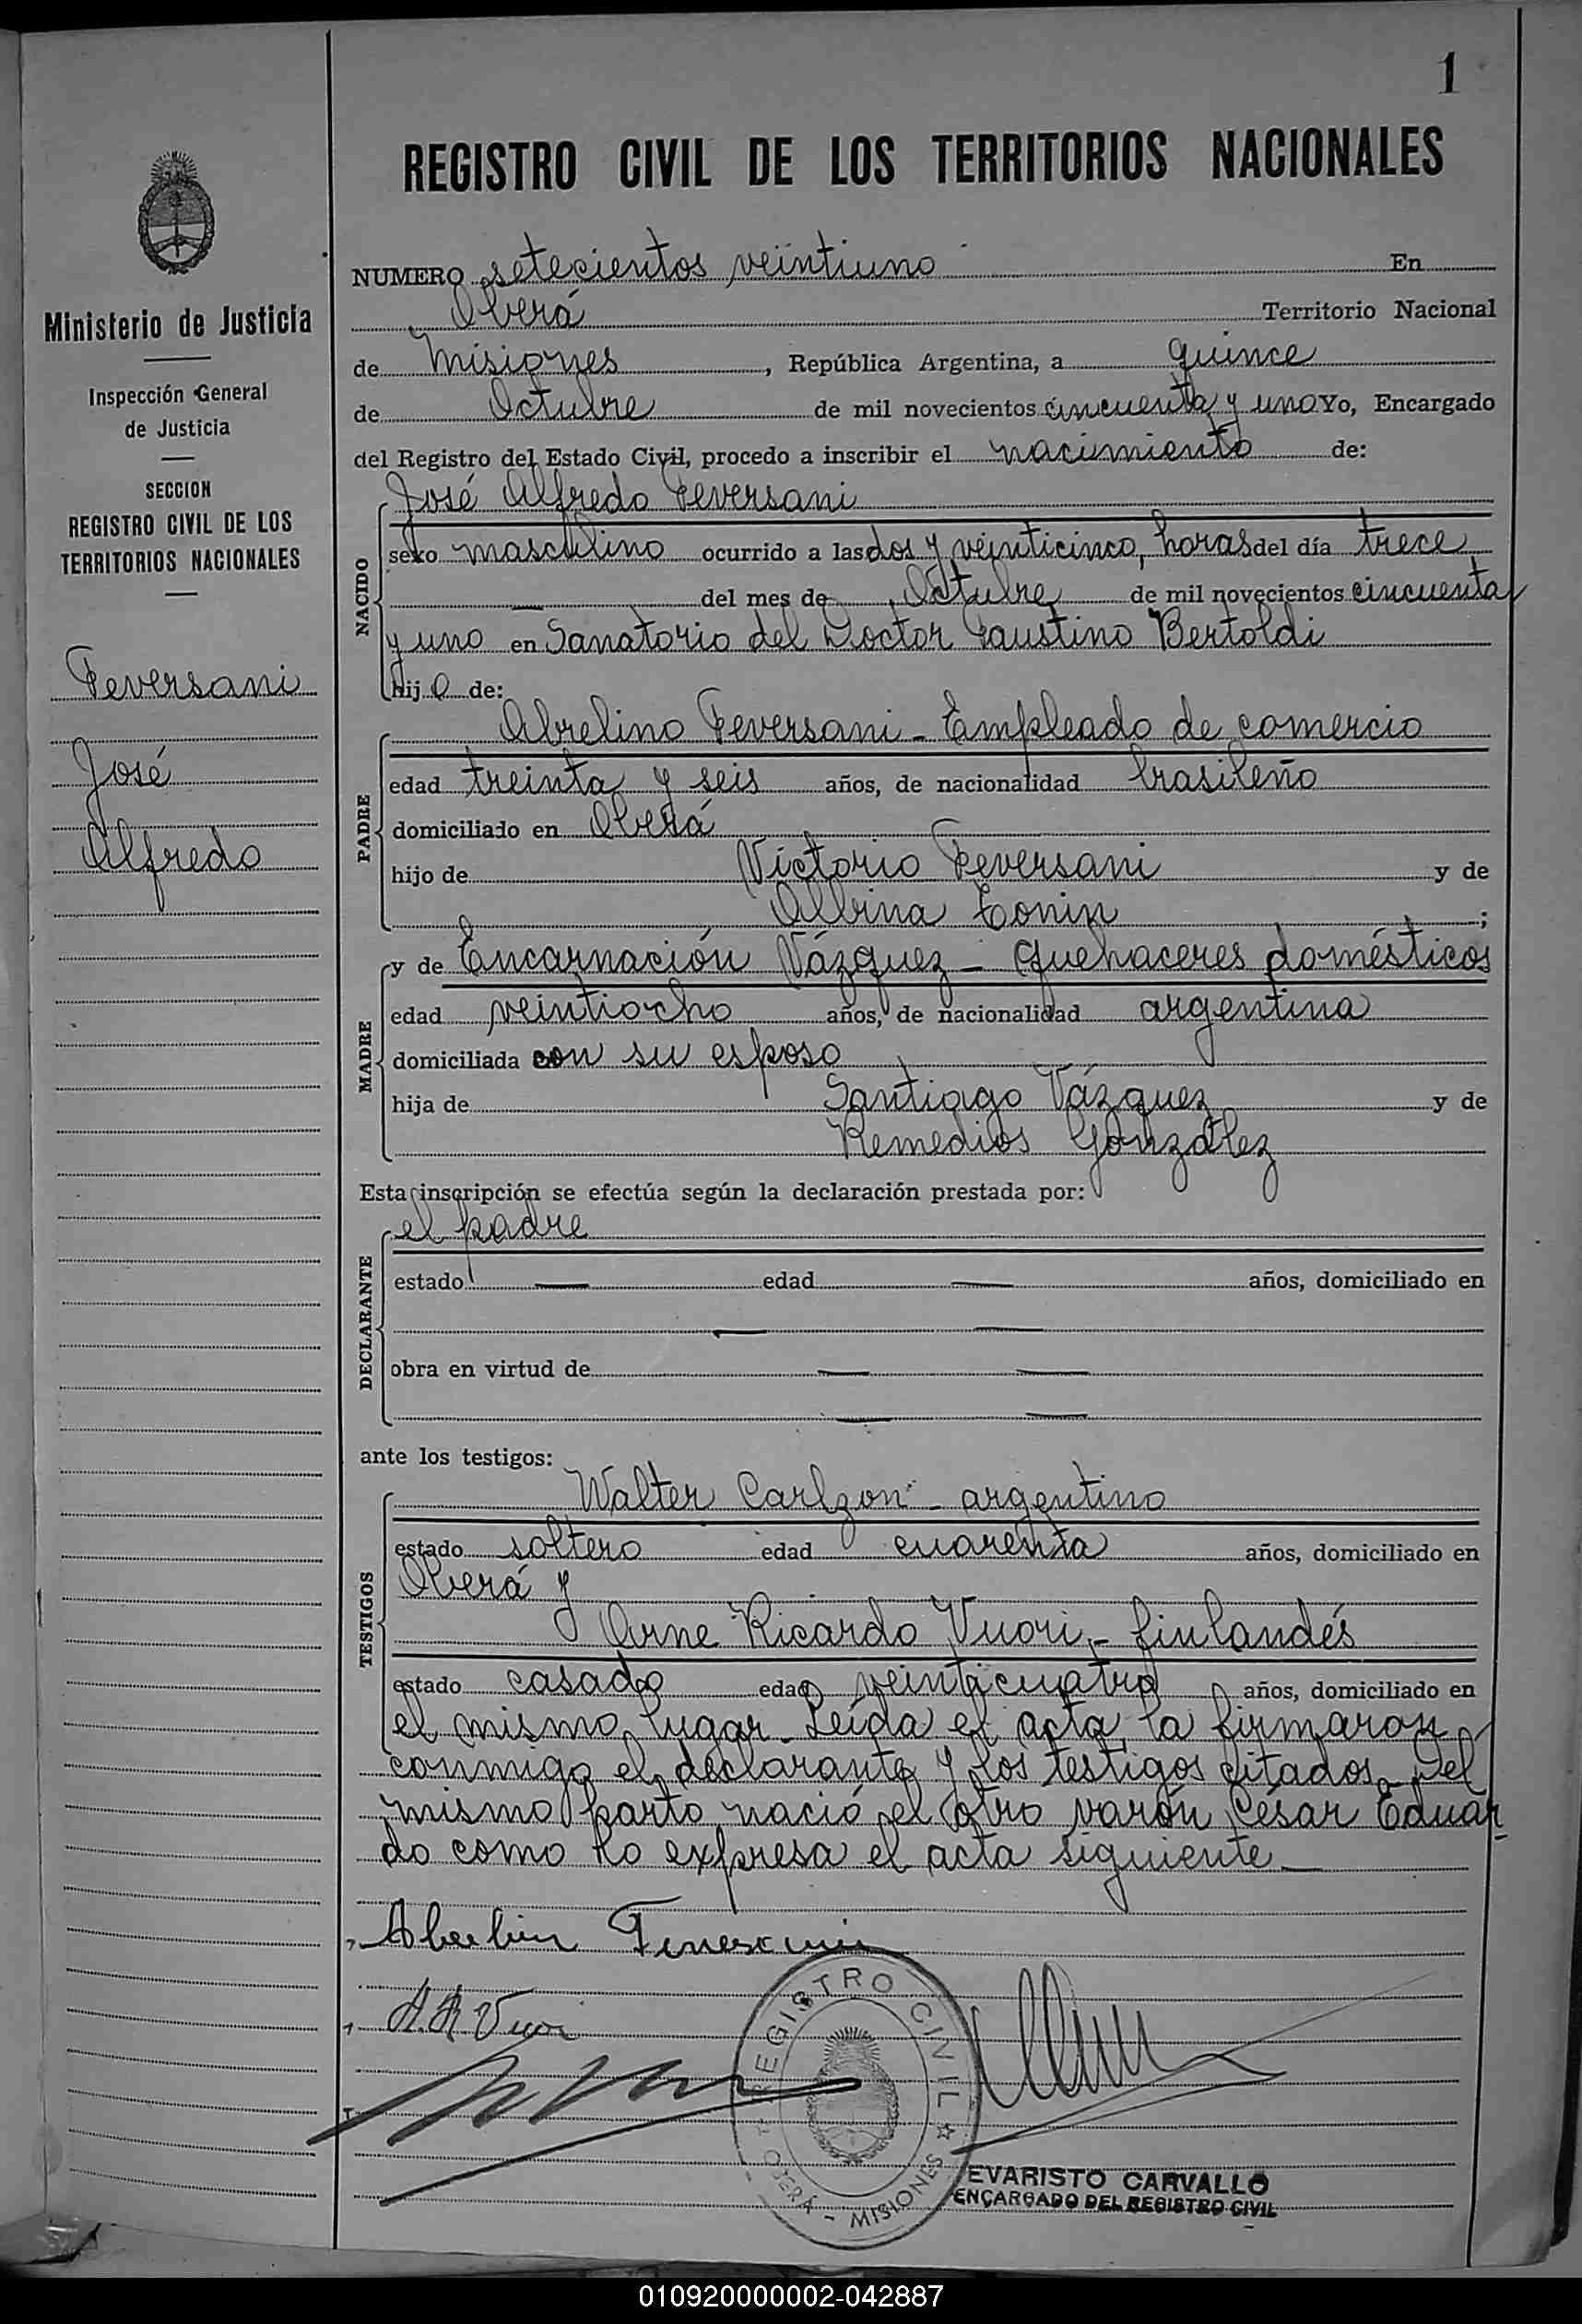 1
REGISTRO CIVIL DE LOS TERRITORIOS NACIONALES
Ministerio de Justicia
Inspección General
de Justicia
SECCION
REGISTRO CIVIL DE LOS
TERRITORIOS NACIONALES
Feversani
José
Alfredo
NUMERO setecientos veintiuno En
Oberá Territorio Nacional
de Misiones, República Argentina, a quince
de Octubre de mil novecientos cincuenta y uno Yo, Encargado
del Registro del Estado Civil, procedo a inscribir el nacimiento de:
NACIDO
José Alfredo Feversani
sexo masculino ocurrido a las dos y veinticinco, horas del día trece
del mes de Octubre de mil novecientos cincuenta
y uno en Sanatorio del Doctor Faustino Bertoldi
hijo de:
PADRE
Abrelino Feversani - Empleado de comercio
edad treinta y seis años, de nacionalidad brasileño
domiciliado en Oberá
hijo de Victorio Feversani y de
Albina Tonin ;
MADRE
y de Encarnación Vázquez - Quehaceres domésticos
edad veintiocho años, de nacionalidad argentina
domiciliada con su esposo
hija de Santiago Vázquez y de
Remedios González
Esta inscripción se efectúa según la declaración prestada por:
DECLARANTE
el padre
estado — edad — años, domiciliado en
obra en virtud de
ante los testigos:
TESTIGOS
Walter Carlzon - argentino
estado soltero edad cuarenta años, domiciliado en
Oberá y
Arne Ricardo Vuori - finlandés
estado casado edad veinticuatro años, domiciliado en
el mismo lugar. Leída el acta, la firmaron
conmigo el declarante y los testigos citados. Del
mismo parto nació el otro varón César Eduar-
do como lo expresa el acta siguiente
A.R. Vuori
REGISTRO CIVIL
OBERÁ - MISIONES
EVARISTO CARVALLO
ENCARGADO DEL REGISTRO CIVIL
010920000002-042887